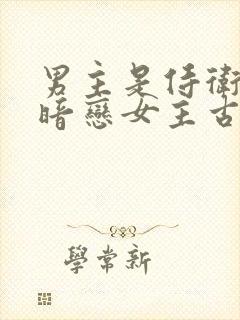 男主是侍衛
暗戀女主古
學常新